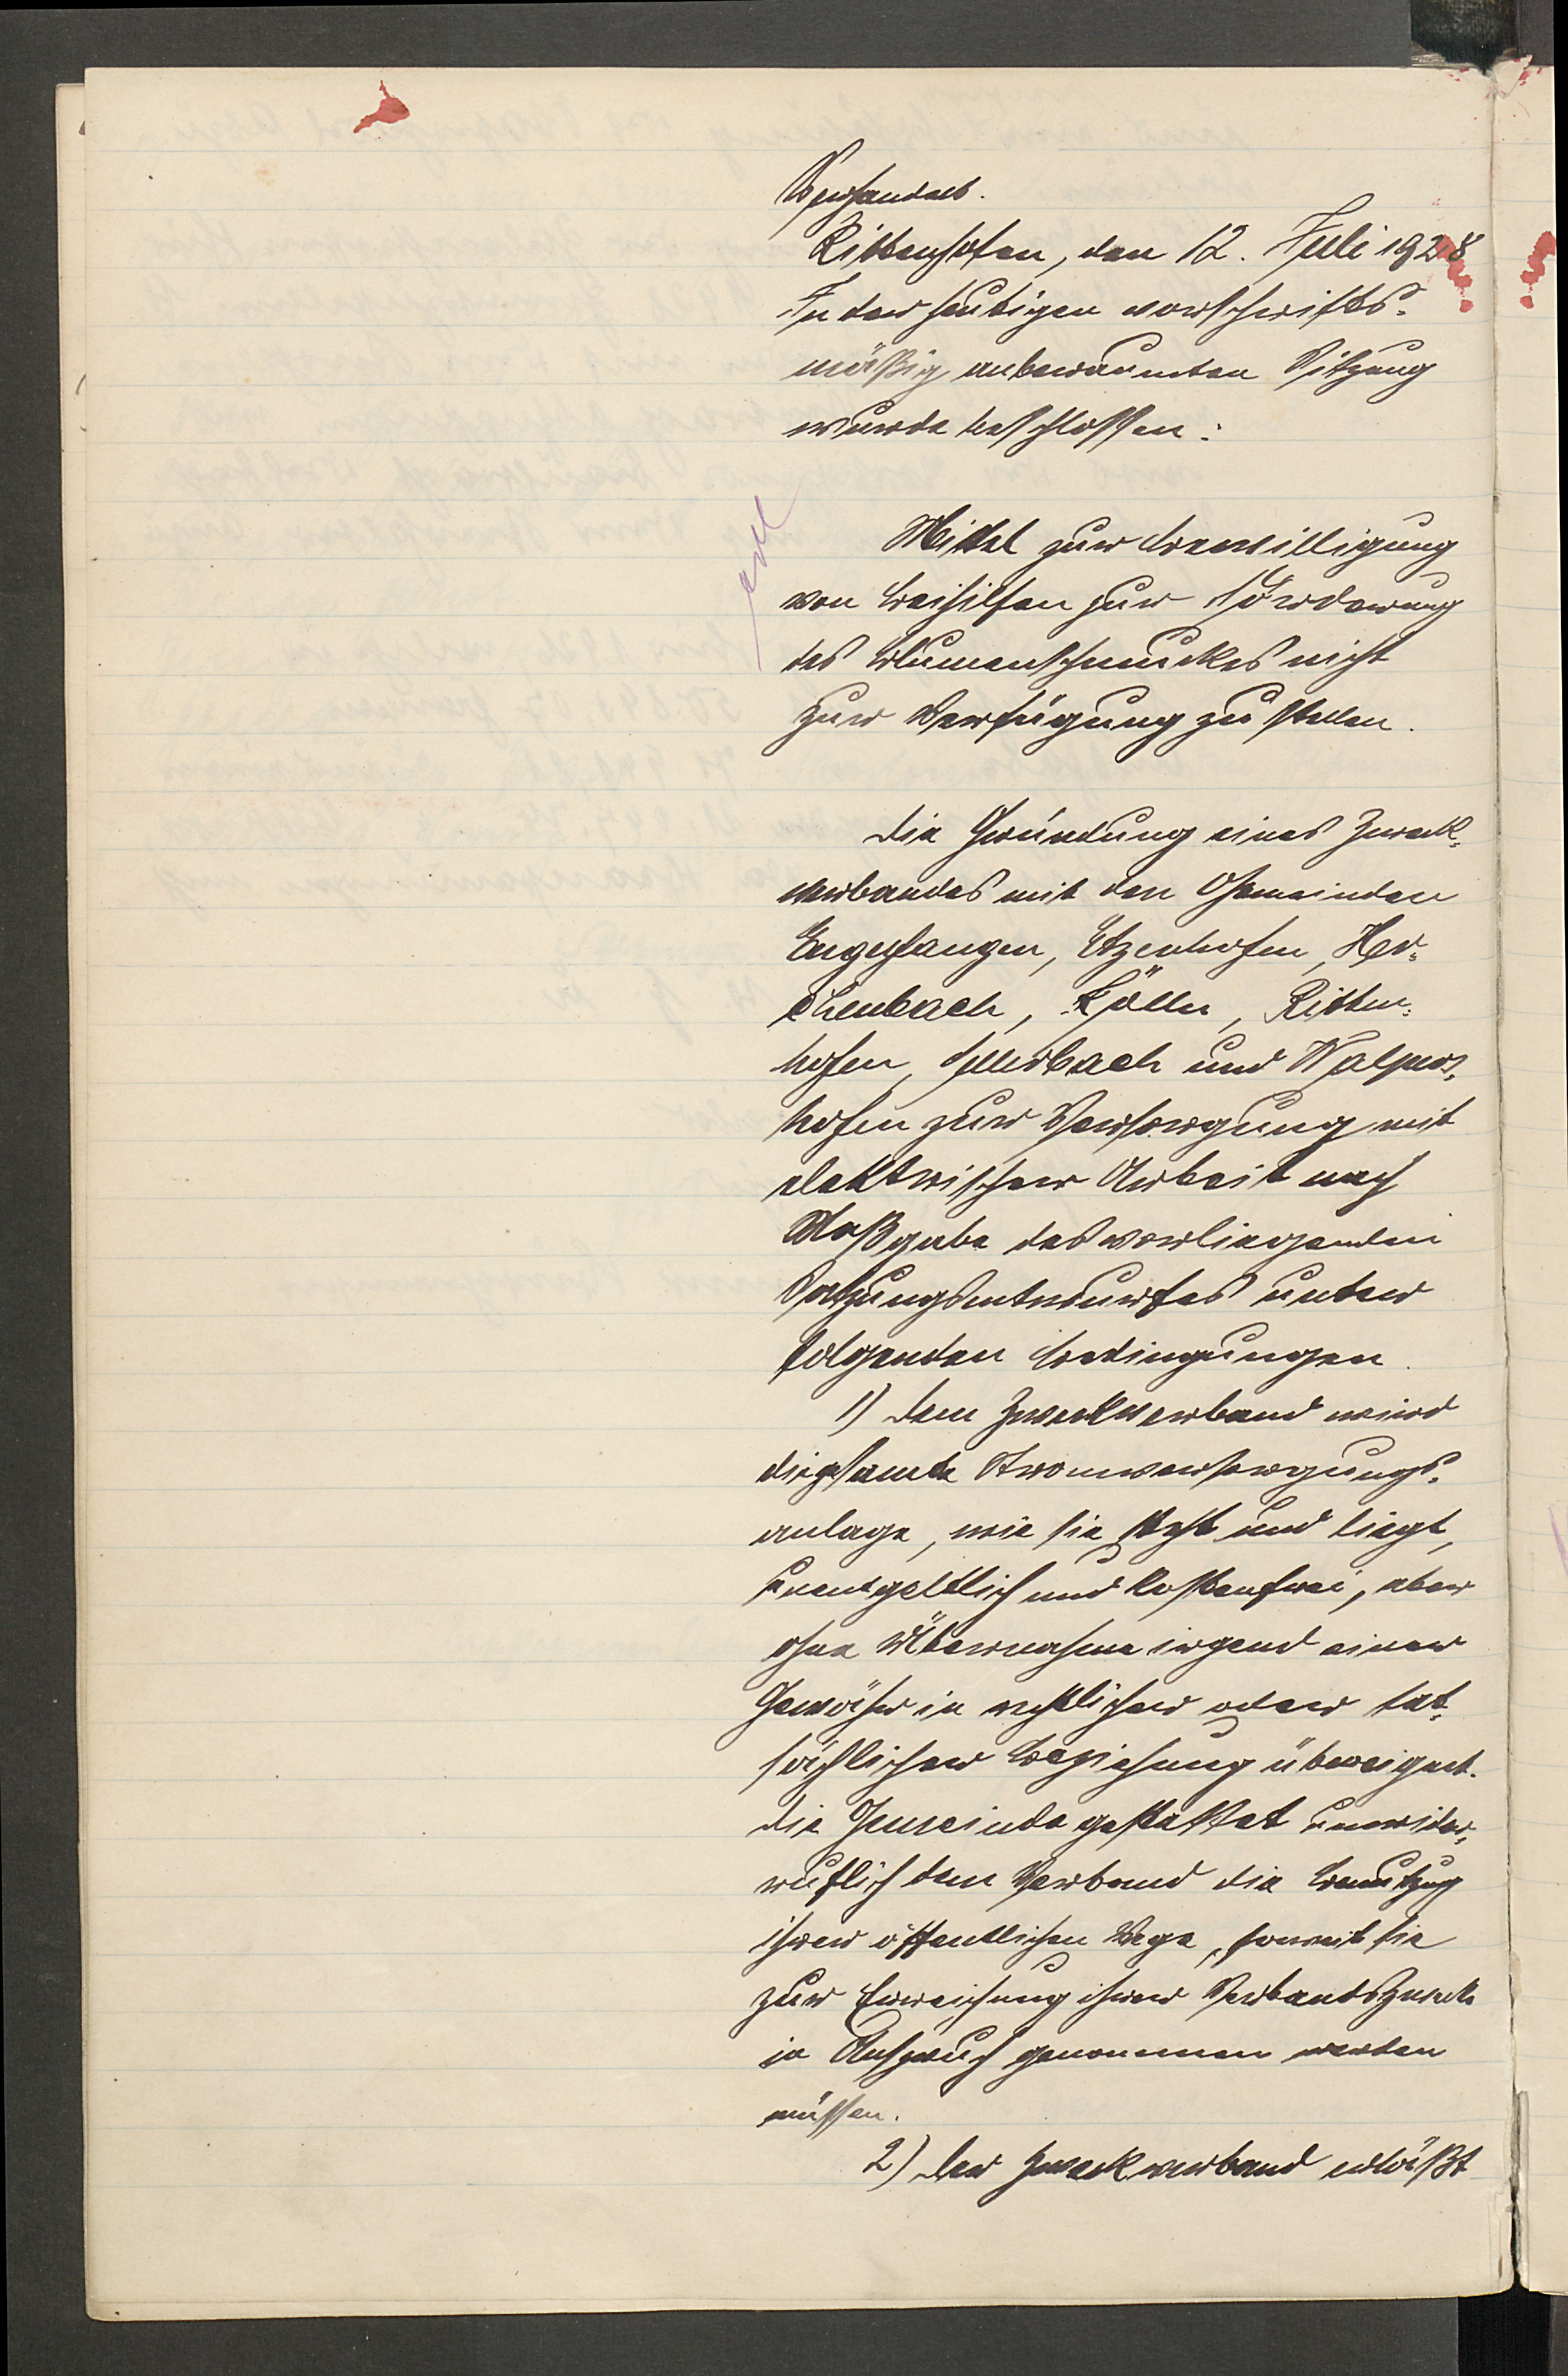 Verhandelt.
Rittenhofen, den 12. Juli 1928
In der heutigen vorschrifts-
mäßig anberaumten Sitzung
wurde beschlossen:
erl
Mittel zur Bewilligung
von Beihilfen zur Förderung
des Blumenschmuckes nicht
zur Verfügung zu stellen.
Die Gründung eines Zweck-
verbandes mit den Gemeinden
Engelfangen, Etzenhofen, Her-
chenbach, Kölln, Ritten-
hofen, Sellerbach und Walpers-
hofen zur Versorgung mit
elektrischer Arbeit nach
Maßgabe des vorliegenden
Satzungsentwurfes unter
folgenden Bedingungen.
1) Dem Zweckverband wird
die gesamte Stromversorgungs-
anlage, wie sie steht und liegt,
unentgeltlich und kostenfrei, aber
ohne Übernahme irgend einer
Gewähr in rechtlicher oder tat-
sächlicher Beziehung übereignet.
Die Gemeinde gestattet unwider-
ruflich dem Verband die Benutzung
ihrer öffentlichen Wege, soweit sie
zur Erreichung ihrer Verbandszwecke
in Anspruch genommen werden
müssen.
2) Der Zweckverband erläßt